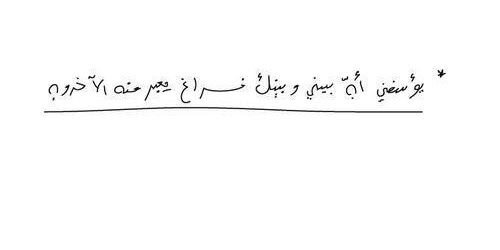 * يؤسفني أنّ بيني وبينك فراغ يعبر منه الآخرون